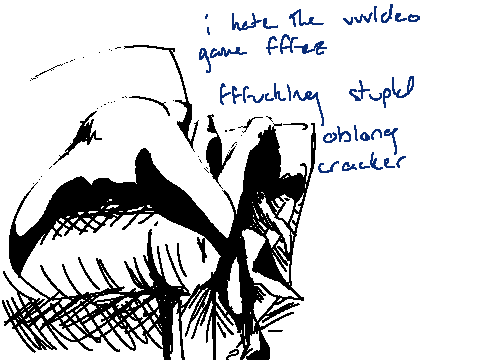 i hate the vvvideo
game fffez
fffucking stupid
oblong
cracker